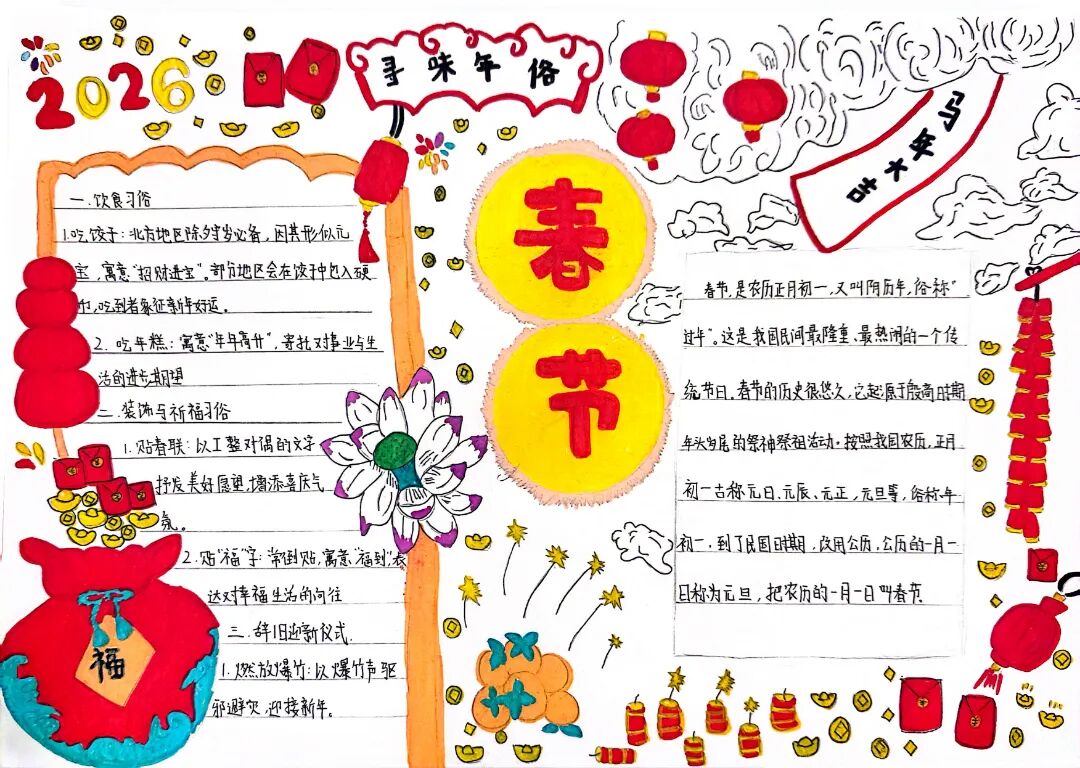 2026
寻味年俗
马年大吉
春节
一.饮食习俗
1.吃饺子:北方地区除夕守岁必备,因其形似元
宝,寓意"招财进宝"。部分地区会在饺子中包入硬
币,吃到者象征新年好运。
2.吃年糕:寓意"年年高升",寄托对事业与生
活的进步期望
二.装饰与祈福习俗
1.贴春联:以工整对偶的文字
抒发美好愿望,增添喜庆气
氛。
2.贴"福"字:常倒贴,寓意"福到",表
达对幸福生活的向往
三.辞旧迎新仪式.
1.燃放爆竹:以爆竹声驱
邪避灾,迎接新年.
福
春节,是农历正月初一,又叫阴历年,俗称"
过年"。这是我国民间最隆重、最热闹的一个传
统节日。春节的历史很悠久,它起源于殷商时期
年头岁尾的祭神祭祖活动。按照我国农历,正月
初一古称元日、元辰、元正、元旦等,俗称年
初一,到了民国时期,改用公历,公历的一月一
日称为元旦,把农历的一月一日叫春节